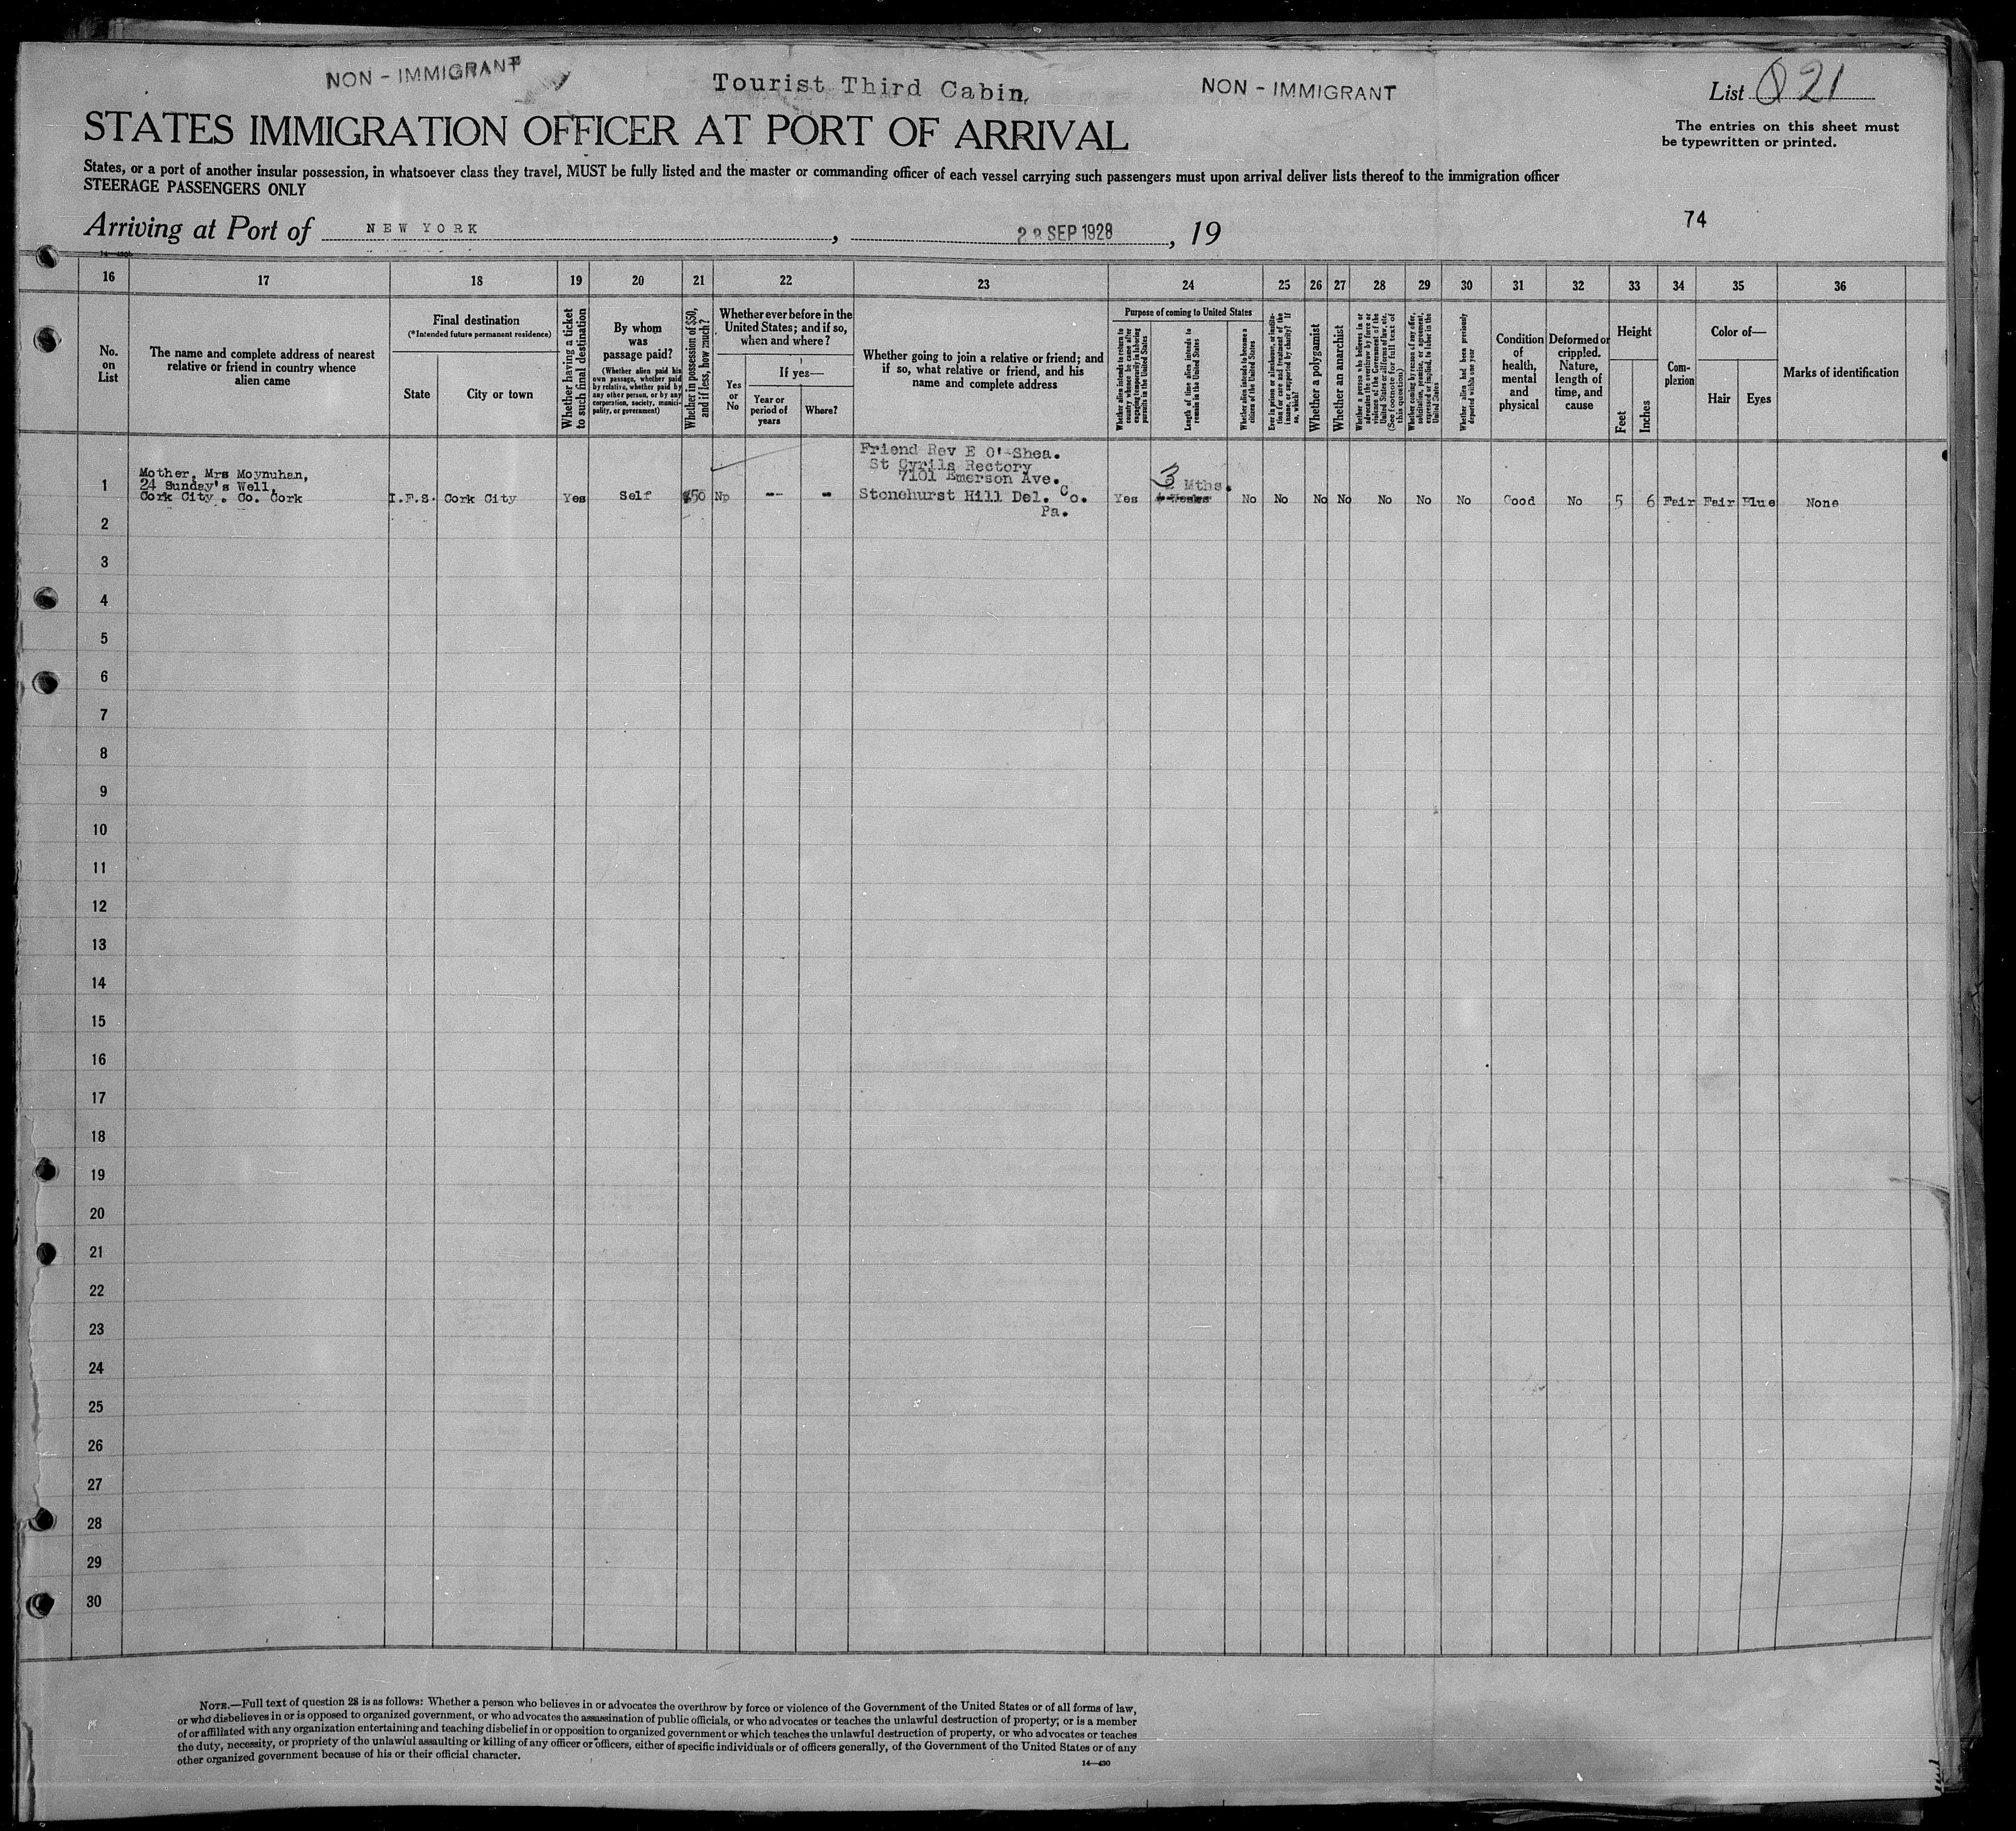 NON - IMMIGRANT
Tourist Third Cabin,
NON - IMMIGRANT
List 21
STATES IMMIGRATION OFFICER AT PORT OF ARRIVAL
The entries on this sheet must
be typewritten or printed.
States, or a port of another insular possession, in whatsoever class they travel, MUST be fully listed and the master or commanding officer of each vessel carrying such passengers must upon arrival deliver lists thereof to the immigration officer
STEERAGE PASSENGERS ONLY
Arriving at Port of NEW YORK, SEP 1928, 19
74
16 17 18 19 20 21 22 23 24 25 26 27 28 29 30 31 32 33 34 35 36
No.
on
List
The name and complete address of nearest
relative or friend in country whence
alien came
Final destination
(*Intended future permanent residence)
State
City or town
Whether having a ticket
to such final destination
By whom
was
passage paid?
(Whether alien paid his
own passage, whether paid
by relative, whether paid by
any other person, or by any
corporation, society, munici-
pality, or government)
Whether in possession of $50,
and if less, how much?
Whether ever before in the
United States; and if so,
when and where?
Yes
or
No
If yes—
Year or
period of
years
Where?
Whether going to join a relative or friend; and
if so, what relative or friend, and his
name and complete address
Purpose of coming to United States
Whether alien intends to return to
country whence he came after
engaging temporarily in laboring
pursuits in the United States
Length of time alien intends to
remain in the United States
Whether alien intends to become a
citizen of the United States
Ever in prison or almshouse, or institu-
tion for care and treatment of the
insane, or supported by charity? If
so, which?
Whether a polygamist
Whether an anarchist
Whether a person who believes in or
advocates the overthrow by force or
violence of the Government of the
United States or all forms of law, etc.
(See footnote for full text of
this question)
Whether coming by reason of any offer,
solicitation, promise, or agreement,
expressed or implied, to labor in the
United States
Whether alien had been previously
deported within one year
Condition
of
health,
mental
and
physical
Deformed or
crippled.
Nature,
length of
time, and
cause
Height
Feet
Inches
Com-
plexion
Color of—
Hair
Eyes
Marks of identification
1
Mother, Mrs Moynuhan,
24 Sunday's Well,
Cork City. Co. Cork
I.F.S.
Cork City
Yes
Self
$50
No
--
-
Friend Rev E O'-Shea.
St Cyrils Rectory
7101 Emerson Ave.
Stonehurst Hill Del. Co.
Pa.
Yes
3 Mths.
No No No No No No No Good No 5 6 Fair Fair Blue None
2
3
4
5
6
7
8
9
10
11
12
13
14
15
16
17
18
19
20
21
22
23
24
25
26
27
28
29
30
NOTE.—Full text of question 28 is as follows: Whether a person who believes in or advocates the overthrow by force or violence of the Government of the United States or of all forms of law,
or who disbelieves in or is opposed to organized government, or who advocates the assassination of public officials, or who advocates or teaches the unlawful destruction of property; or is a member
of or affiliated with any organization entertaining and teaching disbelief in or opposition to organized government or which teaches the unlawful destruction of property, or who advocates or teaches
the duty, necessity, or propriety of the unlawful assaulting or killing of any officer or officers, either of specific individuals or of officers generally, of the Government of the United States or of any
other organized government because of his or their official character.
14—430